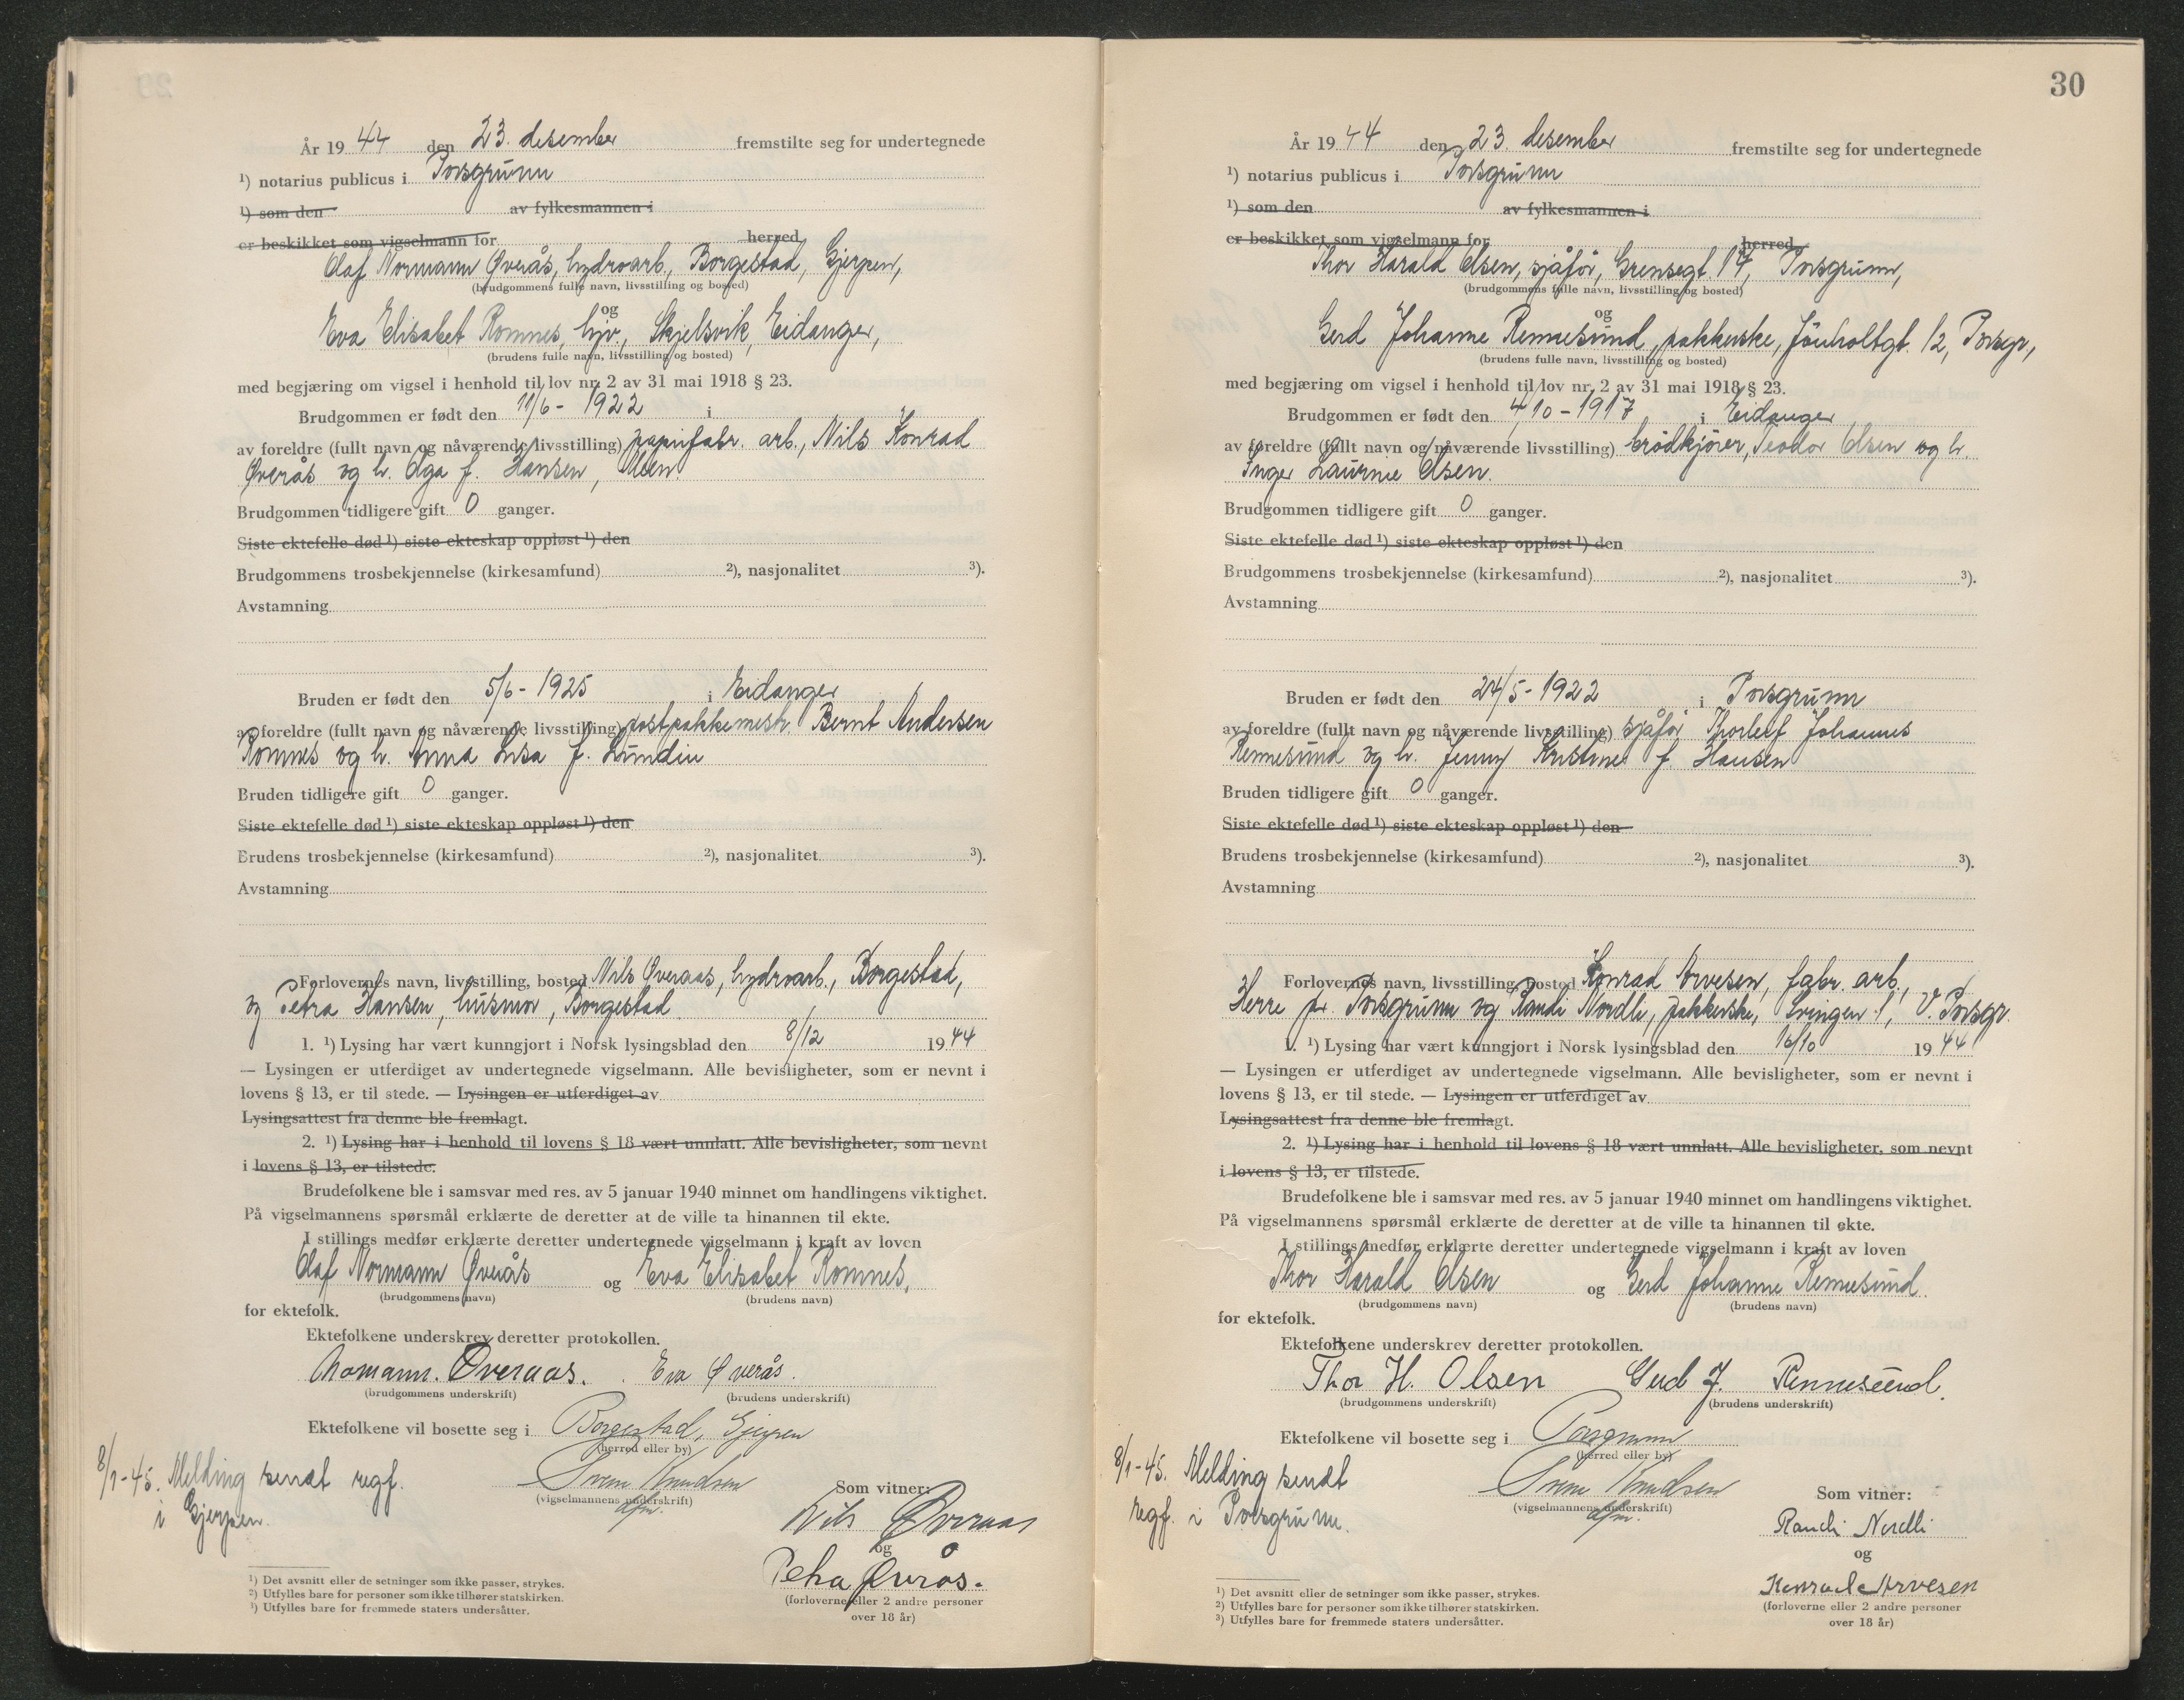 År 19 44 den 23. desember fremstilte seg for undertegnede
¹) notarius publicus i Porsgrunn
¹) som den av fylkesmannen i
er beskikket som vigselmann for herred
Olaf Normann Øverås, hydroarb., Borgestad, Gjerpen,
(brudgommens fulle navn, livsstilling og bosted)
og
Eva Elisabet Romnes, hjv., Skjelsvik, Eidanger,
(brudens fulle navn, livsstilling og bosted)
med begjæring om vigsel i henhold til lov nr. 2 av 31 mai 1918 § 23.
Brudgommen er født den 11/6 - 1922 i
av foreldre (fullt navn og nåværende livsstilling) papirfabr. arb., Nils Konrad
Øverås og h. Aga f. Hansen,
Brudgommen tidligere gift 0 ganger.
Siste ektefelle død ¹) siste ekteskap oppløst ¹) den
Brudgommens trosbekjennelse (kirkesamfund) ²), nasjonalitet ³).
Avstamning
Bruden er født den 5/6 - 1925 i Eidanger
av foreldre (fullt navn og nåværende livsstilling) postpakkemestr. Bernt Andersen
Romnes og h. Anna Lisa f. Lundin
Bruden tidligere gift 0 ganger.
Siste ektefelle død ¹) siste ekteskap oppløst ¹) den
Brudens trosbekjennelse (kirkesamfund) ²), nasjonalitet ³).
Avstamning
Forlovernes navn, livsstilling, bosted Nils Øveraas, hydroarb., Borgestad,
og Petra Hansen, husmor, Borgestad.
1. ¹) Lysing har vært kunngjort i Norsk lysingsblad den 8/12 19 44
— Lysingen er utferdiget av undertegnede vigselmann. Alle bevisligheter, som er nevnt i
lovens § 13, er til stede. — Lysingen er utferdiget av
Lysingsattest fra denne ble fremlagt.
2. ¹) Lysing har i henhold til lovens § 18 vært unnlatt. Alle bevisligheter, som nevnt
i lovens § 13, er tilstede.
Brudefolkene ble i samsvar med res. av 5 januar 1940 minnet om handlingens viktighet.
På vigselmannens spørsmål erklærte de deretter at de ville ta hinannen til ekte.
I stillings medfør erklærte deretter undertegnede vigselmann i kraft av loven
Olaf Normann Øverås og Eva Elisabet Romnes,
(brudgommens navn) (brudens navn)
for ektefolk.
Ektefolkene underskrev deretter protokollen.
Normann. Øveraas. Eva Øverås.
(brudgommens underskrift) (brudens underskrift)
Ektefolkene vil bosette seg i Borgestad, Gjerpen
(herred eller by)
8/1-45. Melding sendt regf.
i Gjerpen.
Svenn Knudsen
(vigselmannens underskrift)
Som vitner:
Nils Øveraas
og
Petra Øverås.
(forloverne eller 2 andre personer
over 18 år)
¹) Det avsnitt eller de setninger som ikke passer, strykes.
²) Utfylles bare for personer som ikke tilhører statskirken.
³) Utfylles bare for fremmede staters undersåtter.
30
År 19 44 den 23. desember fremstilte seg for undertegnede
¹) notarius publicus i Porsgrunn
¹) som den av fylkesmannen i
er beskikket som vigselmann for herred
Thor Harald Olsen, sjåfør, Grensegt. 17, Porsgrunn,
(brudgommens fulle navn, livsstilling og bosted)
og
Gerd Johanne Rennesund, pakkerske, Jønholtgt. 12, Porsgr,
(brudens fulle navn, livsstilling og bosted)
med begjæring om vigsel i henhold til lov nr. 2 av 31 mai 1918 § 23.
Brudgommen er født den 4/10 - 1917 i Eidanger
av foreldre (fullt navn og nåværende livsstilling) brödkjører, Teodor Olsen og h.
Inger Laurine Olsen.
Brudgommen tidligere gift 0 ganger.
Siste ektefelle død ¹) siste ekteskap oppløst ¹) den
Brudgommens trosbekjennelse (kirkesamfund) ²), nasjonalitet ³).
Avstamning
Bruden er født den 24/5 - 1922 i Porsgrunn
av foreldre (fullt navn og nåværende livsstilling) sjåfør Thorleif Johannes
Rennesund og h. Jenny Kristine f. Hansen
Bruden tidligere gift 0 ganger.
Siste ektefelle død ¹) siste ekteskap oppløst ¹) den
Brudens trosbekjennelse (kirkesamfund) ²), nasjonalitet ³).
Avstamning
Forlovernes navn, livsstilling, bosted Konrad Arvesen, fabr. arb.,
Herre pr. Porsgrunn og Randi Nordli, pakkerske, Svingen 1, V. Porsgr.
1. ¹) Lysing har vært kunngjort i Norsk lysingsblad den 16/10 19 44
— Lysingen er utferdiget av undertegnede vigselmann. Alle bevisligheter, som er nevnt i
lovens § 13, er til stede. — Lysingen er utferdiget av
Lysingsattest fra denne ble fremlagt.
2. ¹) Lysing har i henhold til lovens § 18 vært unnlatt. Alle bevisligheter, som nevnt
i lovens § 13, er tilstede.
Brudefolkene ble i samsvar med res. av 5 januar 1940 minnet om handlingens viktighet.
På vigselmannens spørsmål erklærte de deretter at de ville ta hinannen til ekte.
I stillings medfør erklærte deretter undertegnede vigselmann i kraft av loven
Thor Harald Olsen og Gerd Johanne Rennesund.
(brudgommens navn) (brudens navn)
for ektefolk.
Ektefolkene underskrev deretter protokollen.
Thor H. Olsen Gerd J. Rennesund.
(brudgommens underskrift) (brudens underskrift)
Ektefolkene vil bosette seg i Porsgrunn
(herred eller by)
8/1-45. Melding sendt
regf. i Porsgrunn.
Svenn Knudsen
(vigselmannens underskrift)
Som vitner:
Randi Nordli
og
Konrad Arvesen
(forloverne eller 2 andre personer
over 18 år)
¹) Det avsnitt eller de setninger som ikke passer, strykes.
²) Utfylles bare for personer som ikke tilhører statskirken.
³) Utfylles bare for fremmede staters undersåtter.